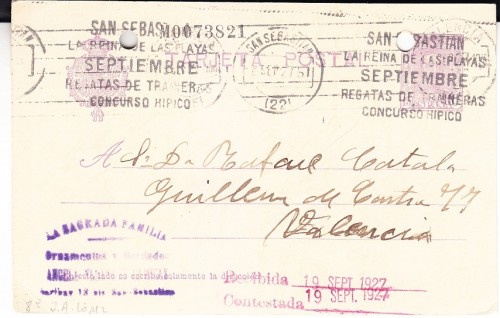 SAN SEBASTIAN
LA REINA DE LAS PLAYAS
SEPTIEMBRE
REGATAS DE TRAINERAS
CONCURSO HIPICO
M0073821
TARJETA POSTAL
SAN SEBASTIAN
(22)
SAN SEBASTIAN
LA REINA DE LAS PLAYAS
SEPTIEMBRE
REGATAS DE TRAINERAS
CONCURSO HIPICO
A Sr. D. Rafael Catala
Guillem de Castro 77
Valencia
LA SAGRADA FAMILIA
Ornamentos y
ANGEL
lado se escribirá solamente la dirección
San Sebastian
Recibida 19 SEPT. 1927
Contestada 19 SEPT. 1927
J.A. López